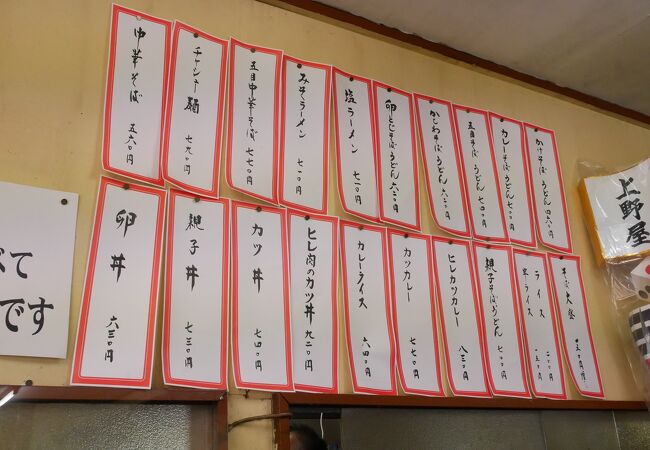 かけそばうどん 四六〇円
カレーそばうどん 七〇〇円
五目そばうどん 七四〇円
かしわそばうどん 六二〇円
卵とじそばうどん 六二〇円
塩ラーメン 七一〇円
みそラーメン 七一〇円
五目中華そば 七七〇円
チャーシュー麺 七九〇円
中華そば 五六〇円
そば大盛
ライス 二〇〇円
半ライス 一五〇円
親子そばうどん 七〇〇円
ヒレカツカレー 八三〇円
カツカレー 七七〇円
カレーライス 六四〇円
ヒレ肉のカツ丼 九二〇円
カツ丼 七四〇円
親子丼 七三〇円
卵丼 六三〇円
上野屋
べて
です